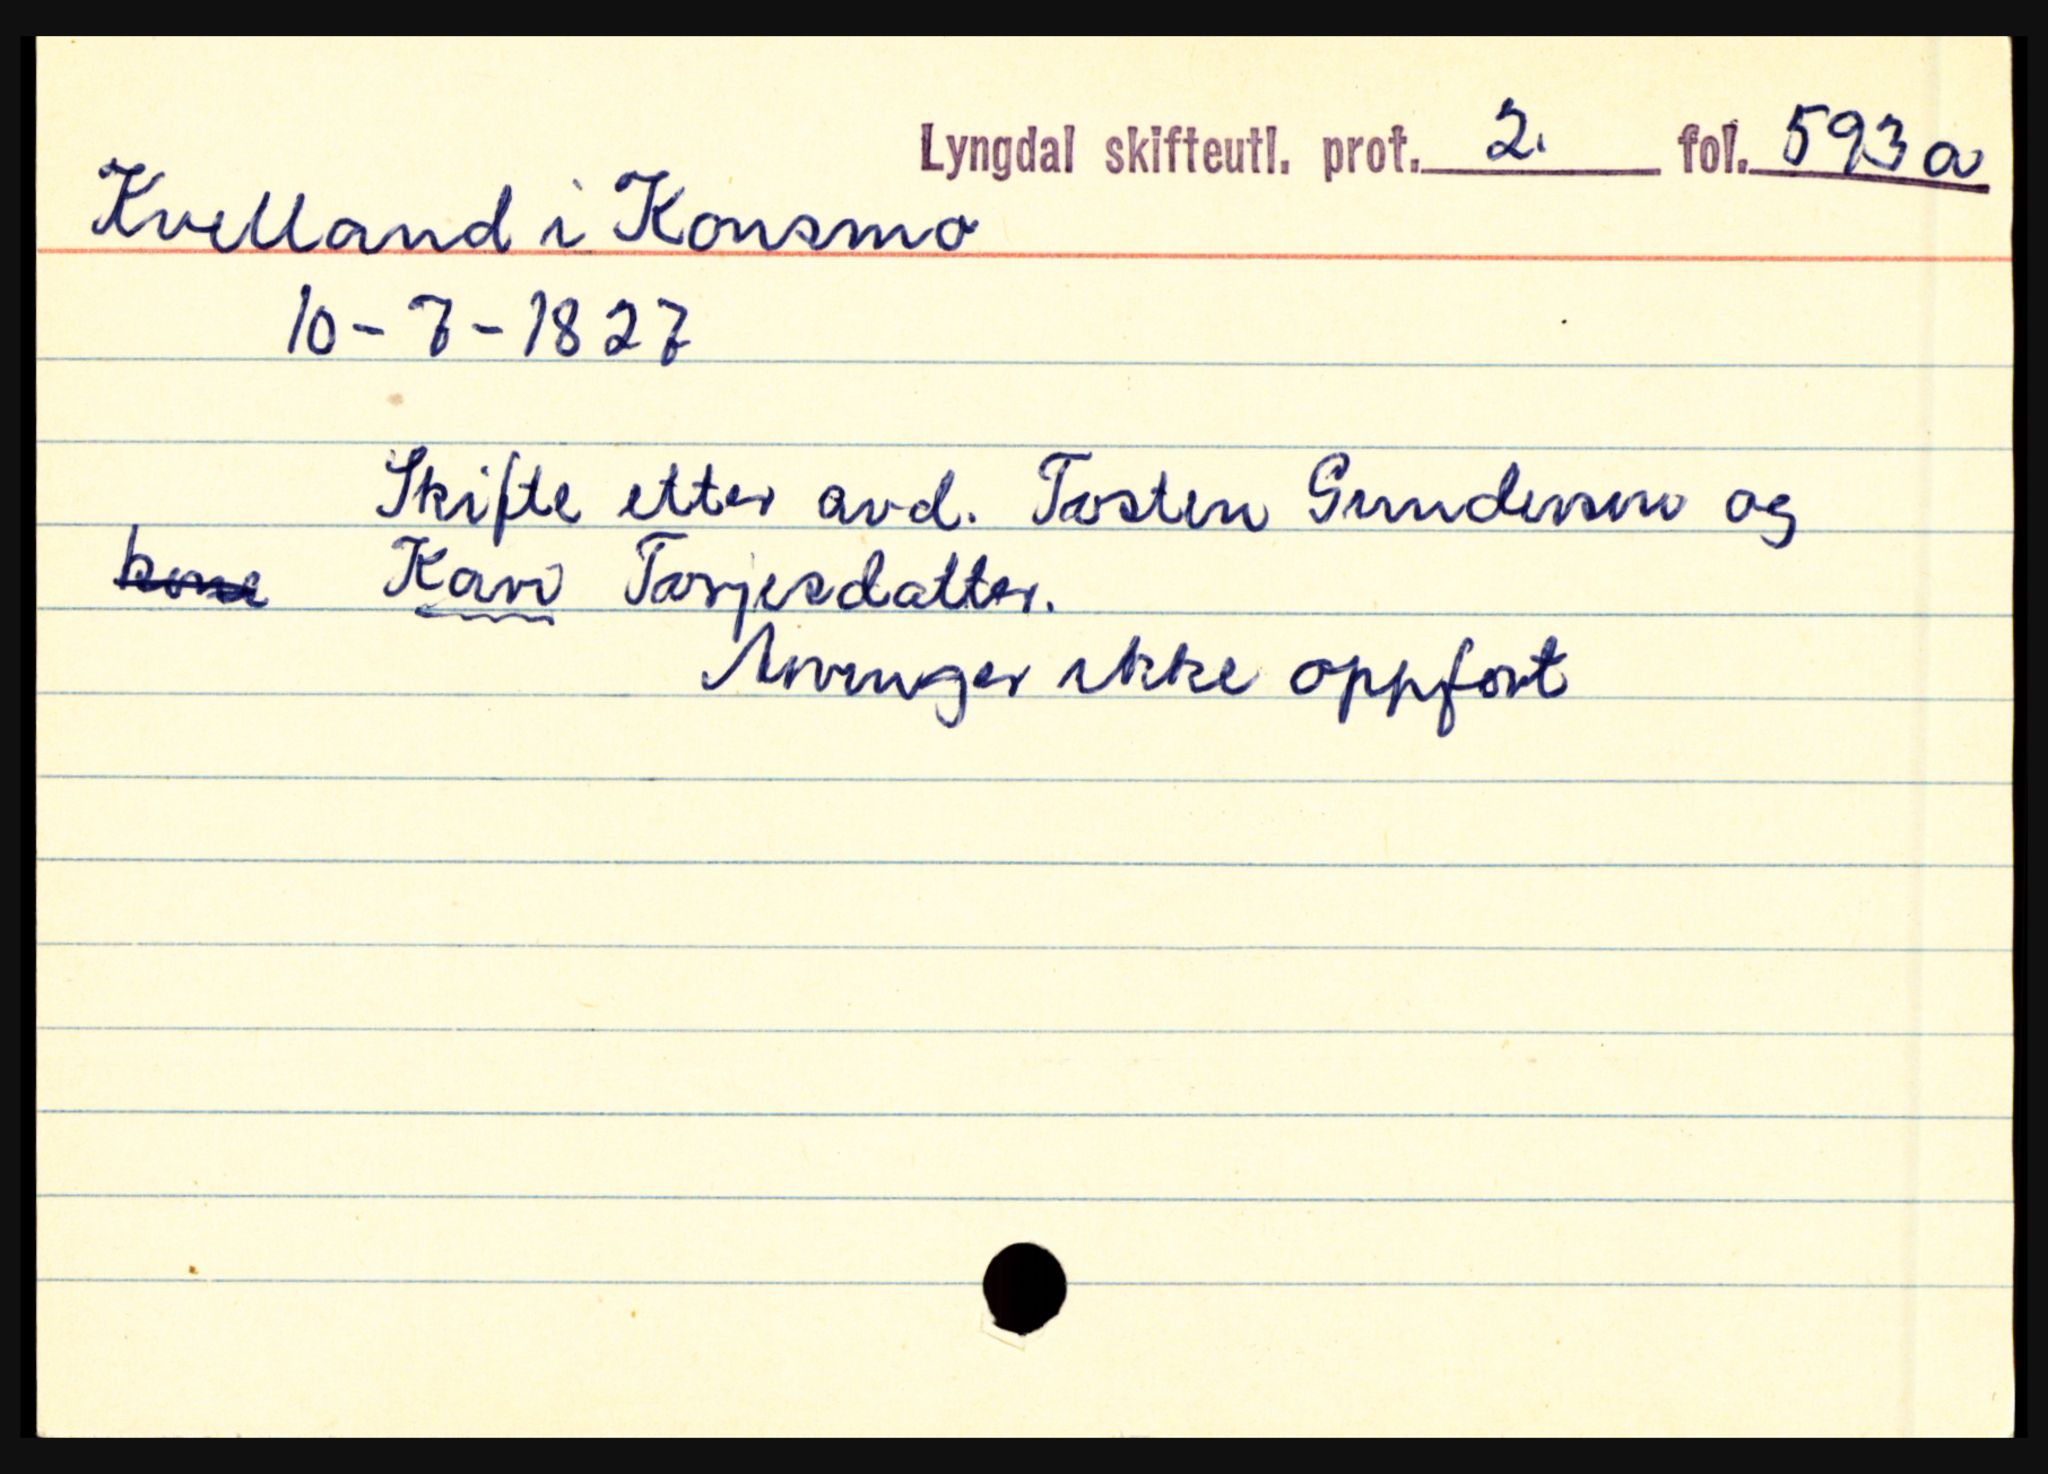 Lyngdal skifteutl. prot. 2. fol. 593a
Kvelland i Konsmo
10-7-1827
Skifte etter avd. Tosten Gundersen og
kone Kari Torjesdatter.
Arvinger ikke oppført